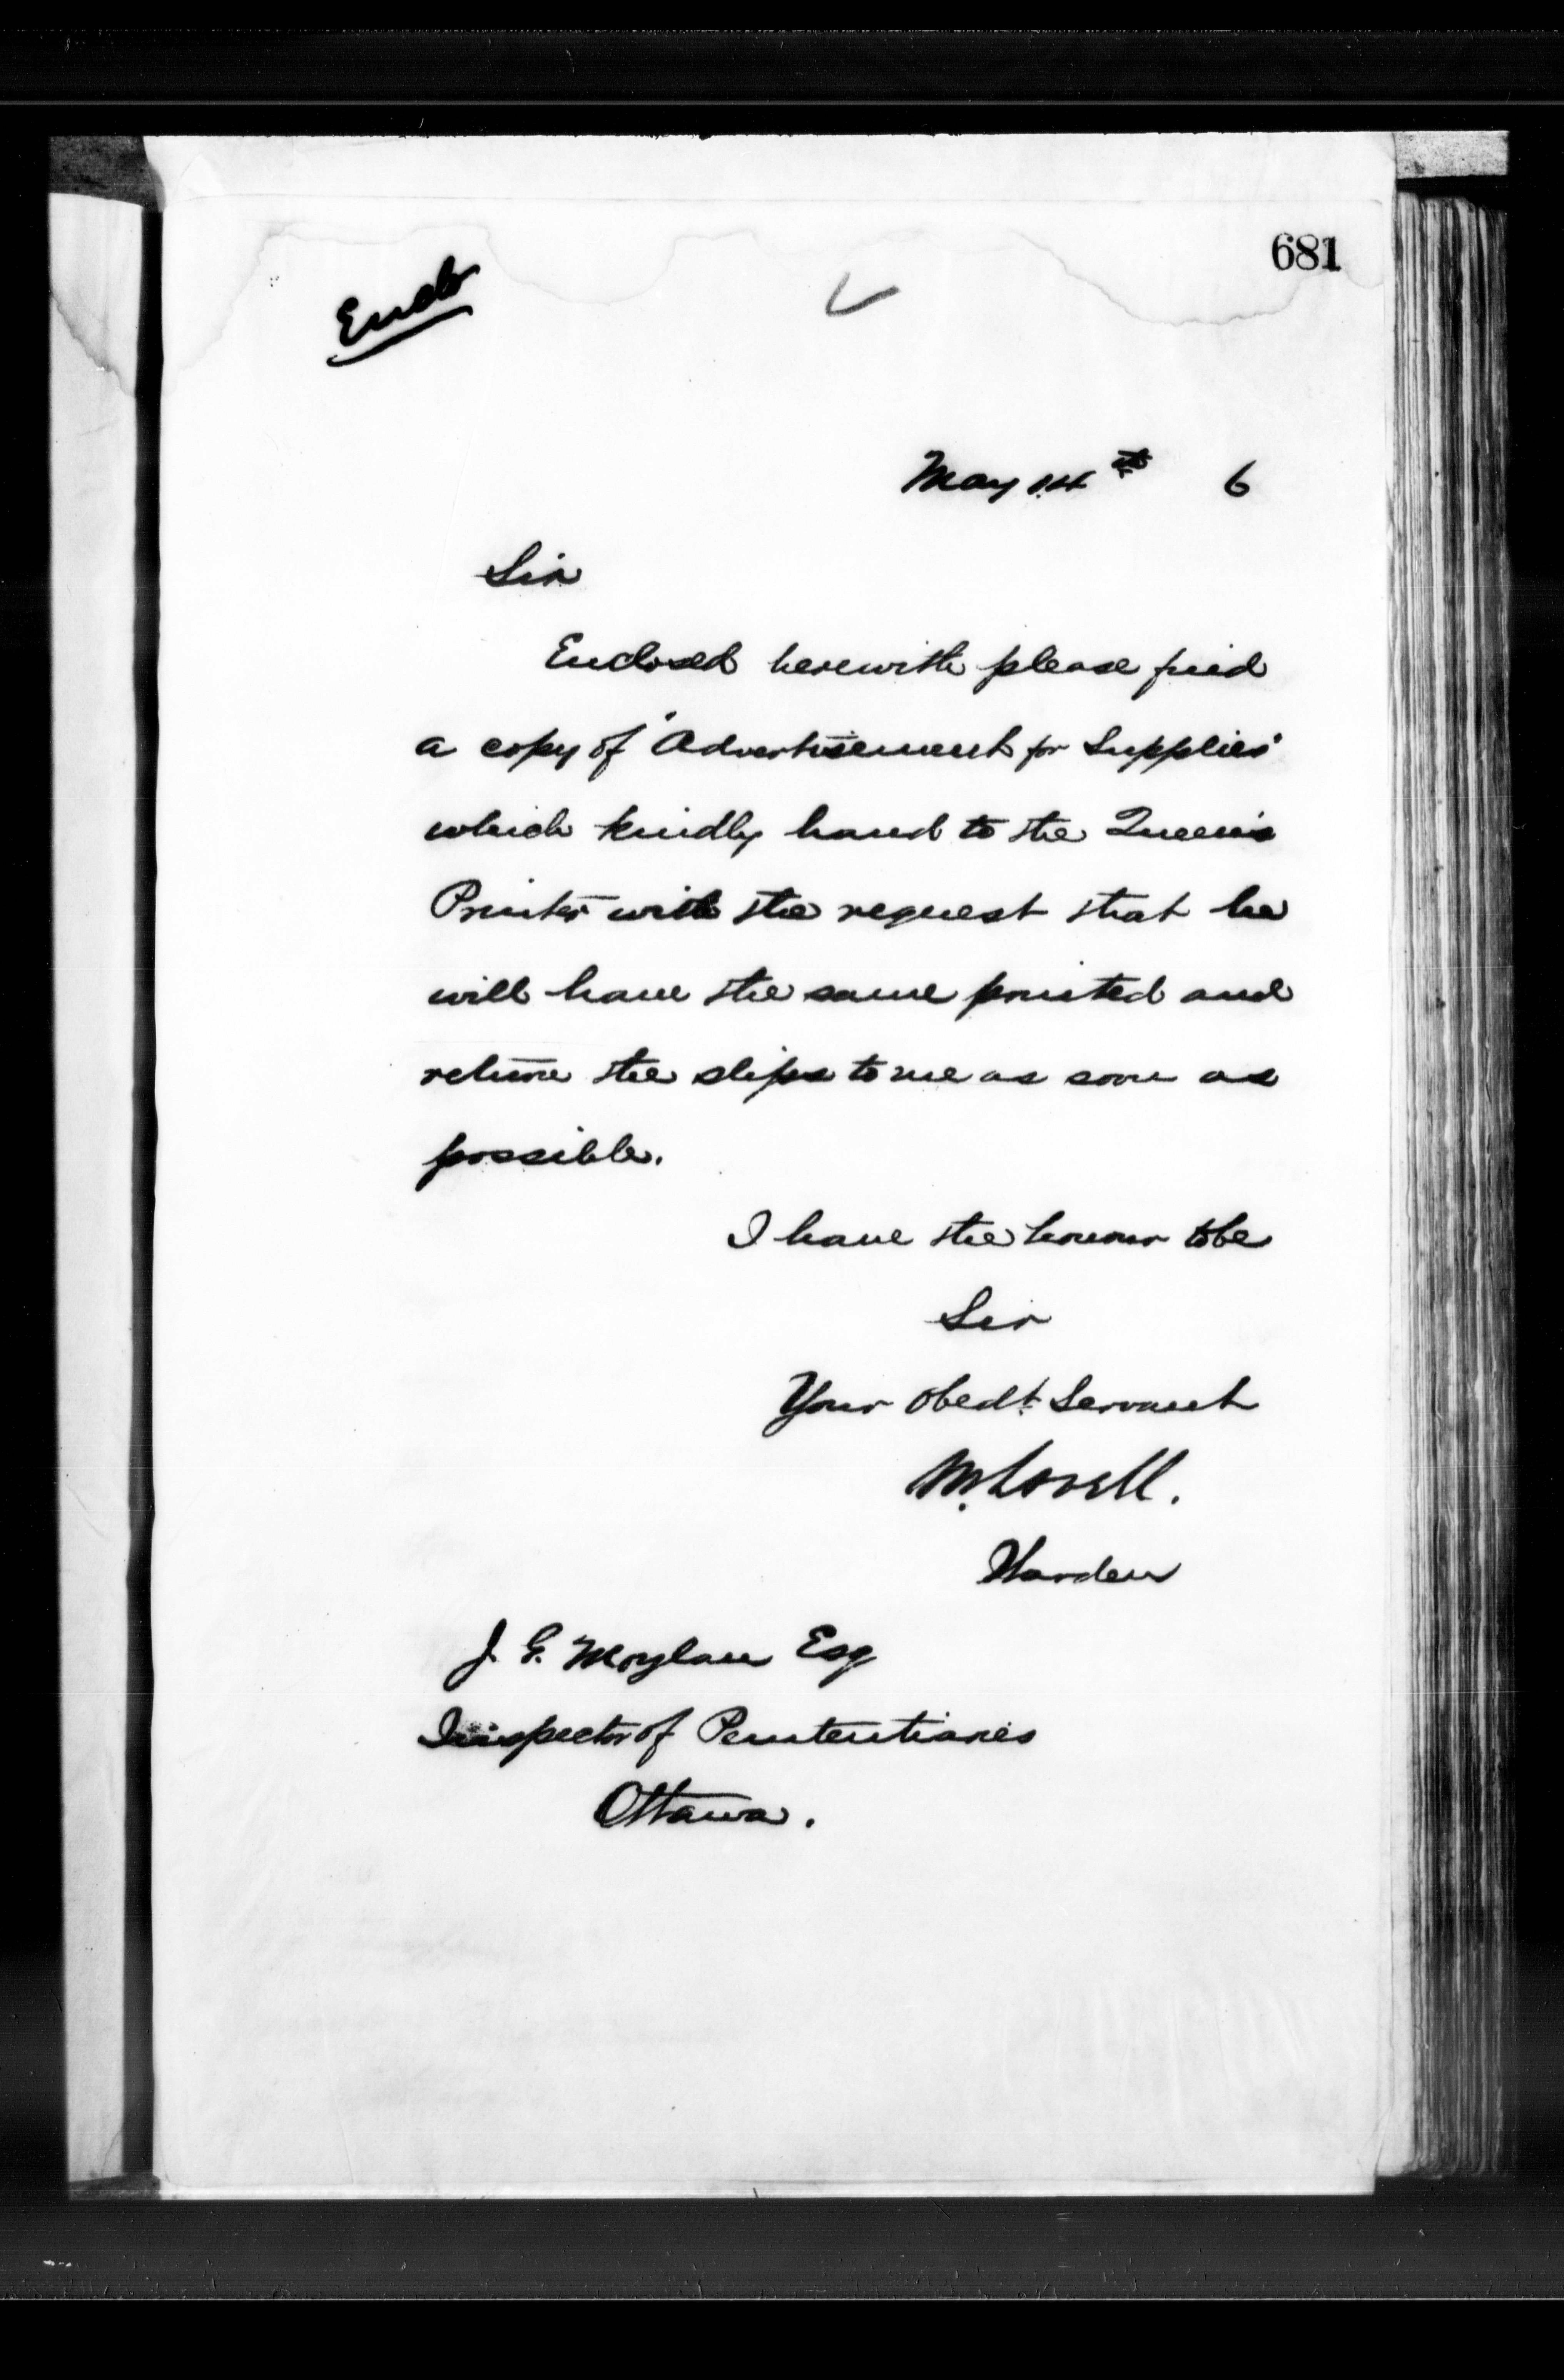 681
Encls
May 14th 6
Sir
Enclosed herewith please find
a copy of "Advertisement for Supplies"
which kindly hand to the Queen's
Printer with the request that he
will have the same printed and
return the slips to me as soon as
possible.
I have the honour to be
Sir
Your Obedt. Servant
M. Lavell.
Warden
J. G. Moylan Esq
Inspector of Penitentiaries
Ottawa.